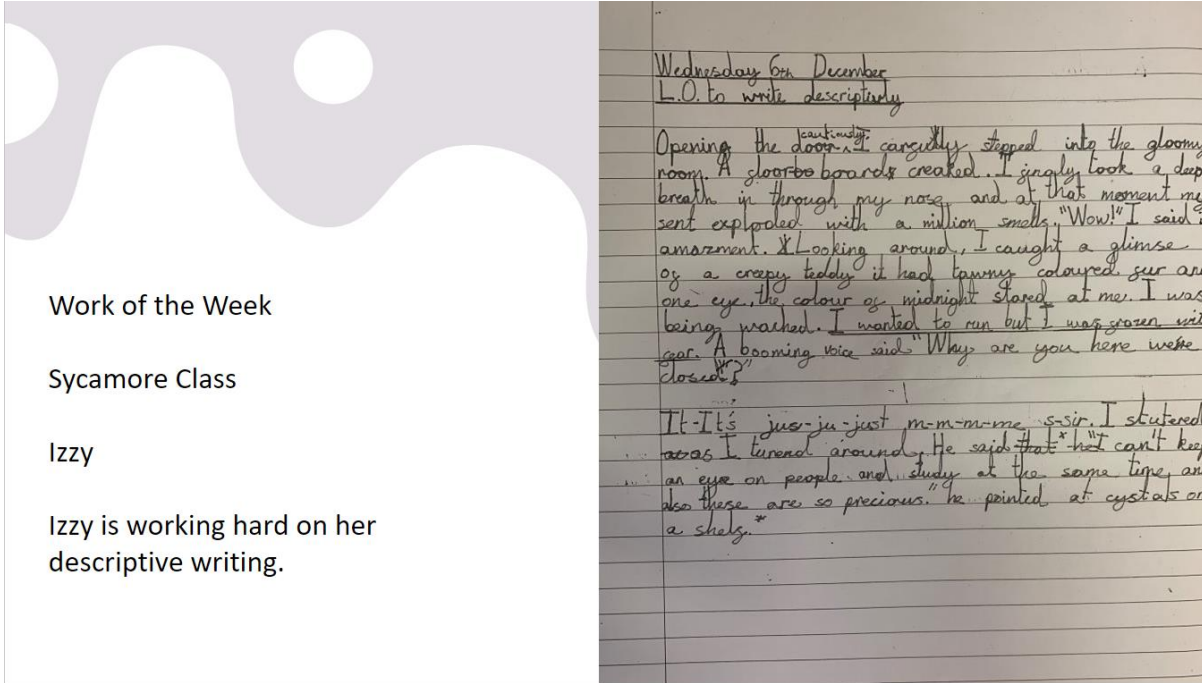 Work of the Week
Sycamore Class
Izzy
Izzy is working hard on her
descriptive writing.
Wednesday 6th December
L.O. to write descriptively
cautiously.
Opening the door ^ I carefully stepped into the gloomy
room. A floorbo boards creaked. I finaly took a deep
breath in through my nose and at that moment my
sent exploded with a million smells. "Wow!" I said
amazment. Looking around, I caught a glimse
of a creepy teddy it had tawny coloured fur an
one eye, the colour of midnight stared at me. I was
being wached. I wanted to run but I was frozen wit
fear. A booming voice said "Why are you here we're
closed?"
It-It's jus-ju-just m-m-m-me s-sir. I stutered
as as I turend around. He said that * he "I can't keep
an eye on people and study at the same time an
also these are so precious." he pointed at cystals on
a shelf.*